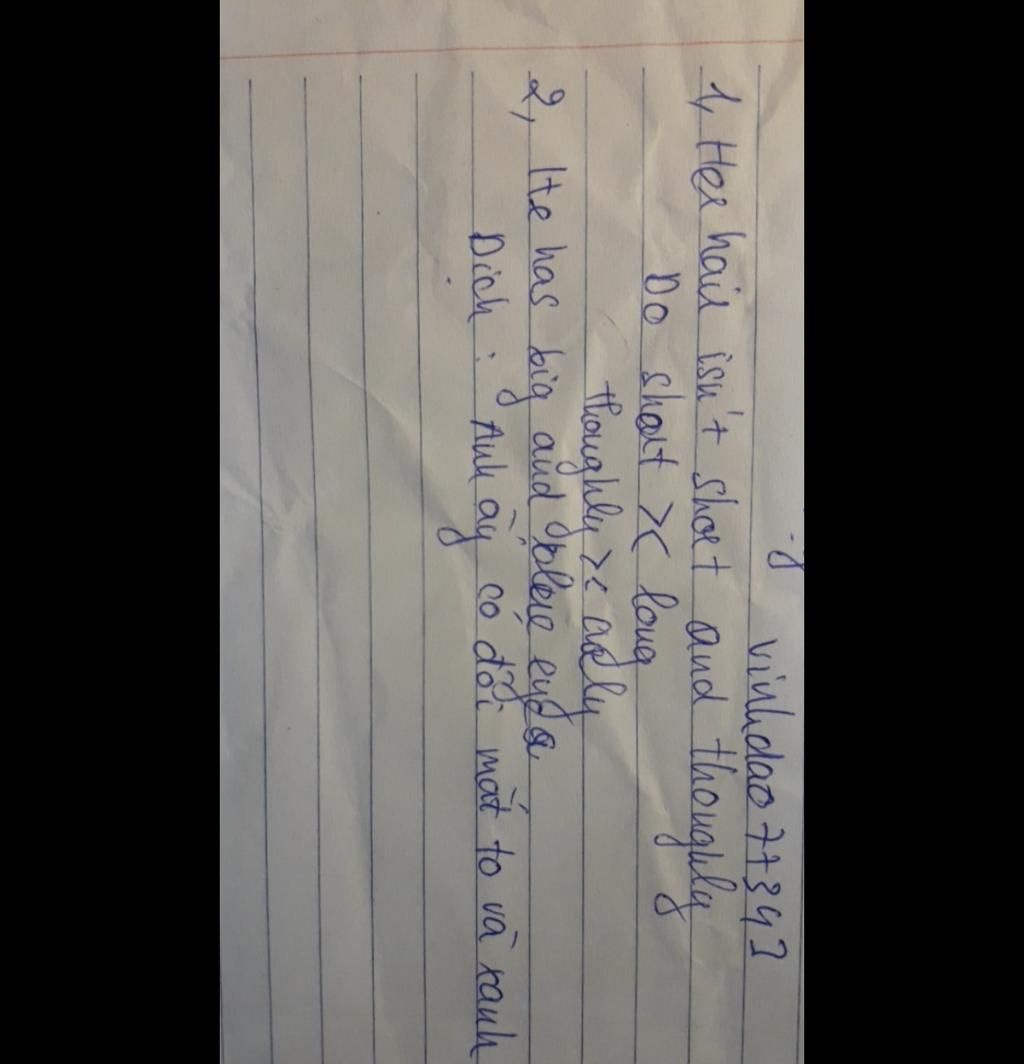 vinhdao77347
1, Her hair isn't short and thoughly
Do short >< long
thoughly ><
2, He has big and blue
Dịch : Anh ấy có đôi mắt to và xanh